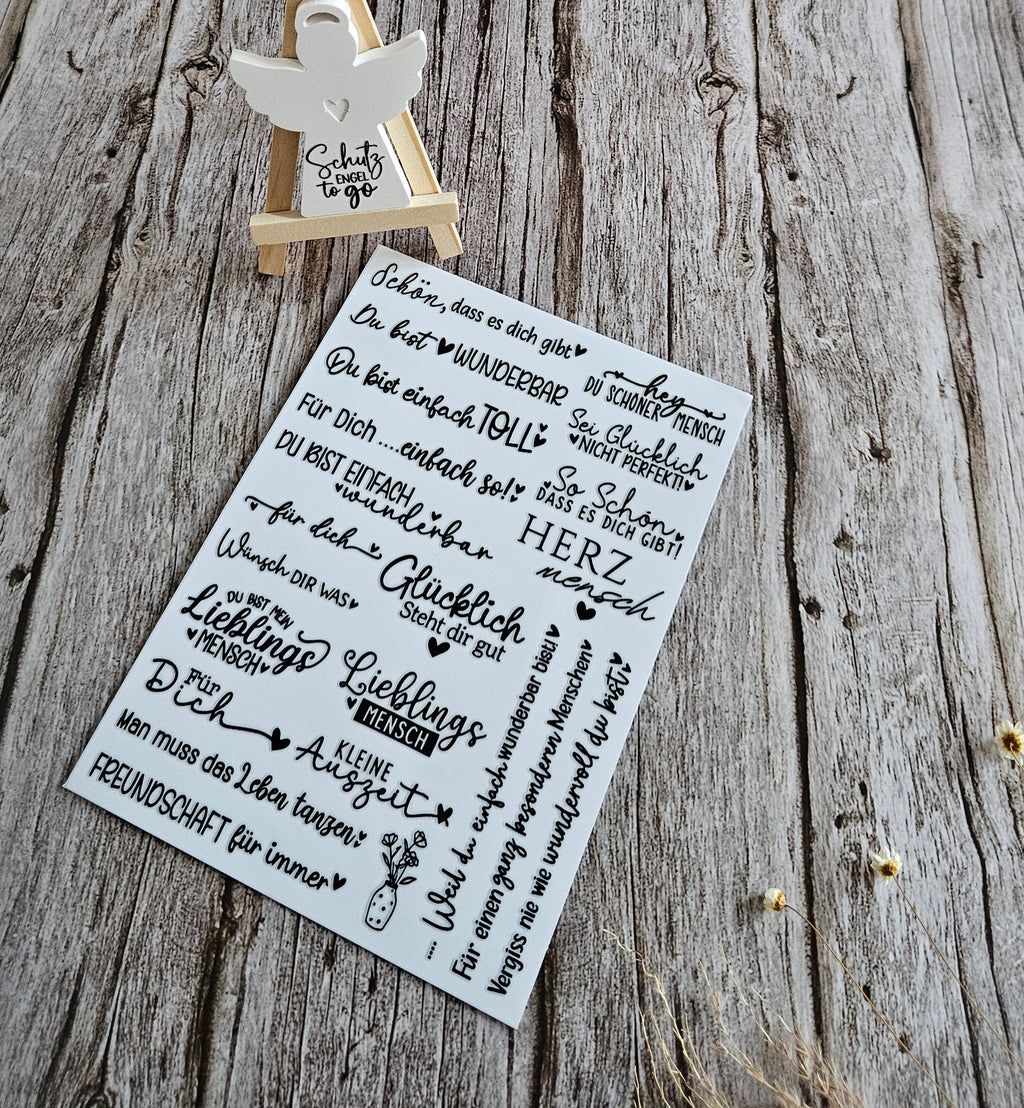 Schutz
ENGEL
to go
Schön, dass es dich gibt
Du bist WUNDERBAR
hey
DU SCHÖNER MENSCH
Du bist einfach TOLL
Sei Glücklich
NICHT PERFEKT!
Für Dich ....einfach so!
So Schön,
DASS ES DICH GIBT!
DU BIST EINFACH
wunderbar
HERZ
mensch
für dich
Glücklich
Steht dir gut
Wünsch DIR WAS
DU BIST MEIN
Lieblings
MENSCH
Lieblings
MENSCH
Für
Dich
KLEINE
Auszeit
Man muss das Leben tanzen
FREUNDSCHAFT für immer
.... Weil du einfach wunderbar bist!
Für einen ganz besonderen Menschen
Vergiss nie wie wundervoll du bist